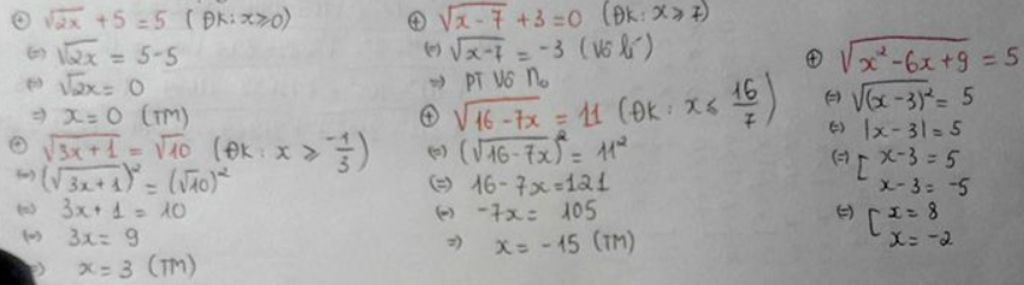 ⊕ √2x + 5 = 5 (ĐK: x ≥ 0)
(=) √2x = 5-5
(=) √2x = 0
=) x = 0 (TM)
⊕ √3x+1 = √10 (ĐK: x ≥ -1/3)
(=) (√3x+1)² = (√10)²
(=) 3x+1 = 10
(=) 3x = 9
=) x = 3 (TM)
⊕ √x-7 + 3 = 0 (ĐK: x ≥ 7)
(=) √x-7 = -3 (Vô lí)
=) PT Vô no
⊕ √16-7x = 11 (ĐK: x ≤ 16/7)
(=) (√16-7x)² = 11²
(=) 16-7x = 121
(=) -7x = 105
=) x = -15 (TM)
⊕ √x²-6x+9 = 5
(=) √(x-3)² = 5
(=) |x-3| = 5
(=) [ x-3 = 5
x-3 = -5
(=) [ x = 8
x = -2